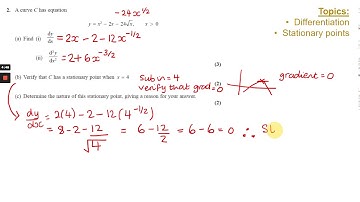 Topics:
• Differentiation
• Stationary points
2. A curve C has equation
-24x^{1/2}
y = x² – 2x – 24√x, x > 0
(a) Find (i) dy/dx = 2x - 2 - 12x^{-1/2}
(ii) d²y/dx² = 2 + 6x^{-3/2}
(3)
(b) Verify that C has a stationary point when x = 4
Sub x = 4
verify that grad = 0
gradient = 0
(2)
(c) Determine the nature of this stationary point, giving a reason for your answer.
(2)
dy/dx = 2(4) - 2 - 12(4^{-1/2})
= 8 - 2 - 12/√4 = 6 - 12/2 = 6 - 6 = 0 ∴ St